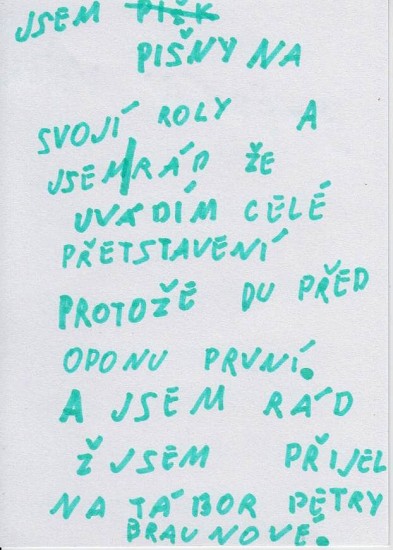 JSEM PIŠK
PIŠNY NA
SVOJÍ ROLY A
JSEM/RÁD ŽE
UVÁDÍM CELÉ
PŘETSTAVENÍ
PROTOŽE DU PŘED
OPONU PRVNÍ.
A JSEM RÁD
Ž JSEM PŘIJEL
NA TÁBOR PETRY
BRAUNOVÉ.